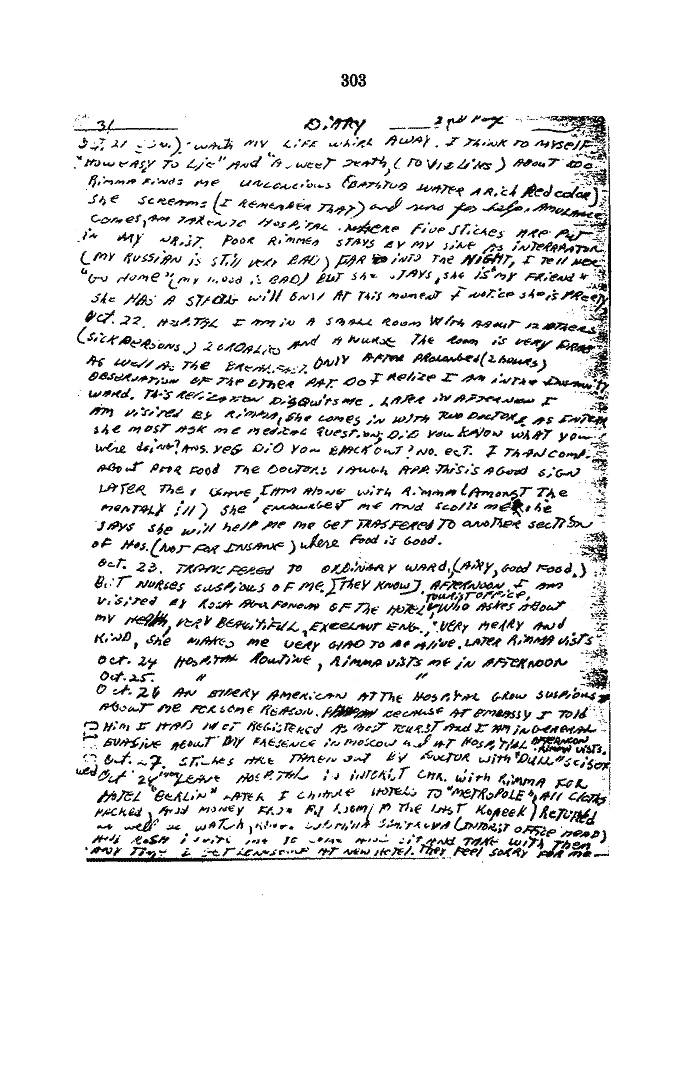 303
31 DIARY 2nd Page
Oct. 21 watch my LIFE whirl AWAY. I THINK TO MYSELF
"HOW EASY TO Lie" AND "A SWEET DEATH, (TO VIOLINS) ABOUT
RIMMA FINDS ME UNCONCIOUS (BATHTUB WATER A RICH Red color)
SHE SCREAMS (I REMEMBER THAT) and runs for help. AMULANCE
COMES, AM TAKEN TO HOSPITAL WHERE FIVE STICHES ARE PUT
IN MY WRIST. POOR RIMMEA STAYS BY MY SIDE AS INTERRPATOR
(MY RUSSIAN IS STILL VERY BAD) FAR INTO THE NIGHT, I TELL HER
"GO HOME" (MY MOOD IS BAD) BUT SHE STAYS, SHE IS "MY FRIEND"
SHE HAS A STRONG will ONLY AT THIS MOMENT I NOTICE SHE IS PREETY
OCT. 22. HOSPITAL I AM IN A SMALL ROOM WITH ABOUT 12 OTHERS
(SICK PERSONS.) 2 ORDALIES AND A NURSE THE ROOM IS VERY DRAB
AS WELL AS THE BREAKFAST. ONLY AFTER PROLONGED (2 HOURS)
OBSERVATION OF THE OTHER PAT. DO I RELIZE I AM IN THE INSANITY
WARD. THIS RELIZATION DISQUITS ME. LATER IN AFTERNOON I
AM VISITED BY RIMMA, SHE COMES IN WITH TWO DOCTORS, AS INTERR
SHE MUST ASK ME MEDICAL QUESTION; DID YOU KNOW WHAT YOU
WERE doing? ANS. YES DID YOU BLACKOUT? NO. ECT. I THAN COMP.
ABOUT POOR FOOD THE DOCTORS LAUGH APP. THIS IS A GOOD SIGN
LATER THEY LEAVE, I AM ALONE WITH RIMMA (AMONGST THE
MENTALY ILL) SHE ENCOURGES ME AND SCOLDS ME, she
SAYS SHE WILL HELP ME GET TRASFERED TO ANOTHER SECTION
OF HOS. (NOT FOR INSANE) where FOOD IS GOOD.
OCT. 23. TRANSFERED TO ORDINARY WARD, (AIRY, GOOD FOOD.)
BUT NURSES SUSPICIOUS OF ME. [THEY KNOW]. AFTERNOON I AM
VISITED BY ROSA OF THE HOTEL TOURIST OFFICE, WHO ASKES ABOUT
MY HEALTH, VERY BEAUTIFUL, EXCELANT ENG., VERY MERRY AND
KIND, SHE MAKES ME VERY GLAD TO BE ALIVE. LATER RIMMA VISTS
OCT. 24 HOSPITAL ROUTINE, RIMMA VISTS ME IN AFTERNOON
Oct. 25. " "
Oct. 26 AN ELDERY AMERICAN AT THE HOSPITAL GROW SUSPICIOUS
ABOUT ME FOR SOME REASON. BECAUSE AT EMBASSY I TOLD
HIM I HAD NOT REGISTERED AS MOST TOURIST AND I AM IN GENERAL
EVASIVE ABOUT MY PRESENCE IN MOSCOW AND AT HOSPITAL AFTERNOON RIMMA VISTS.
Oct. 27. STICHES ARE TAKEN OUT BY DOCTOR WITH "DULL" SCISOR
wed Oct 28 LEAVE HOSPITAL IN INTURIST CAR. WITH RIMMA FOR
HOTEL "BERLIN" LATER I CHANGE HOTELS TO "METROPOLE", ALL CLOTHS
PACKED, AND MONEY FROM MY ROOM (TO THE LAST KOPEEK) RETURED
AS WELL AS WATCH, (INTURIST OFFICE HEAD)
AND ROSA INVITE ME TO COME AND SIT AND TAKE WITH THEM
ANY TIME I GET LONESOME AT NEW HOTEL. THEY FEEL SORRY FOR ME